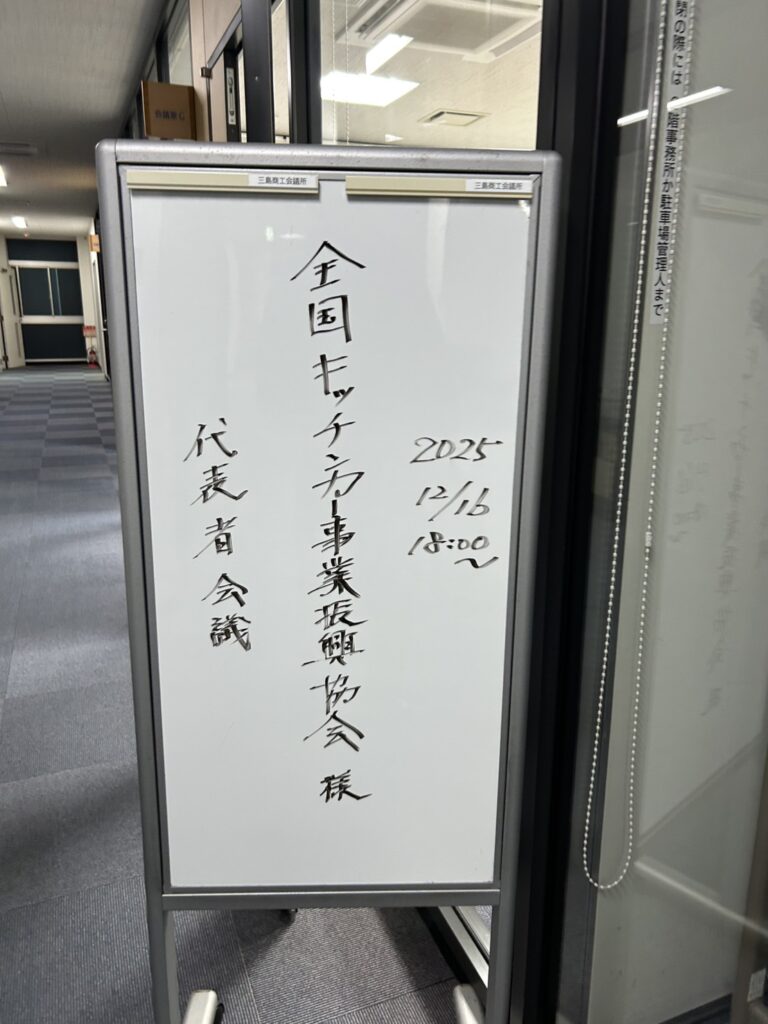 三島商工会議所
三島商工会議所
2025
12/16
18:00〜
全国キッチンカー事業振興協会 様
代表者会議
会議室G
閉の際には
階事務所か駐車場管理人まで